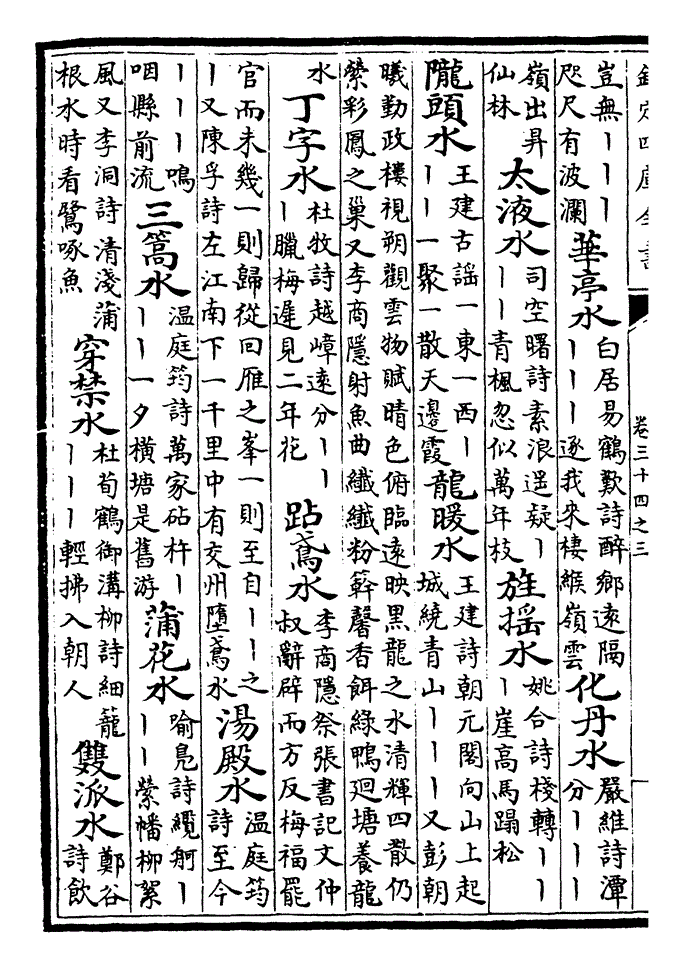 欽定四庫全書 卷三十四之三
豈無｜｜｜咫尺有波瀾 華亭水 白居易鶴歎詩醉鄉遠隔｜｜｜逐我來棲緱嶺雲 化丹水 嚴維詩潭分｜｜｜
嶺出昇仙林 太液水 司空曙詩素浪遥疑｜｜｜青楓忽似萬年枝 旌揺水 姚合詩棧轉｜｜｜崖高馬蹋松
隴頭水 王建古謡一東一西｜｜｜一聚一散天邊霞 龍暖水 王建詩朝元閣向山上起城繞青山｜｜｜又彭朝
曦勤政樓視朔觀雲物賦晴色俯臨遠映黒龍之水清輝四散仍縈彩鳳之巢又李商隱射魚曲纖纖粉簳馨香餌綠鴨廻塘養龍
水 丁字水 杜牧詩越嶂遠分｜｜｜臘梅遲見二年花 跕鳶水 李商隱祭張書記文仲叔辭辟而方反梅福罷
官而未幾一則歸從回雁之峯一則至自｜｜之｜又陳孚詩左江南下一千里中有交州墮鳶水 湯殿水 温庭筠詩至今
｜｜｜鳴咽縣前流 三篙水 温庭筠詩萬家砧杵｜｜｜一夕横塘是舊游 蒲花水 喻鳬詩纜舸｜｜｜縈幡柳絮
風又李洞詩清淺蒲根水時看鷺啄魚 穿禁水 杜荀鶴御溝柳詩細籠｜｜｜輕拂入朝人 雙派水 鄭谷詩飲